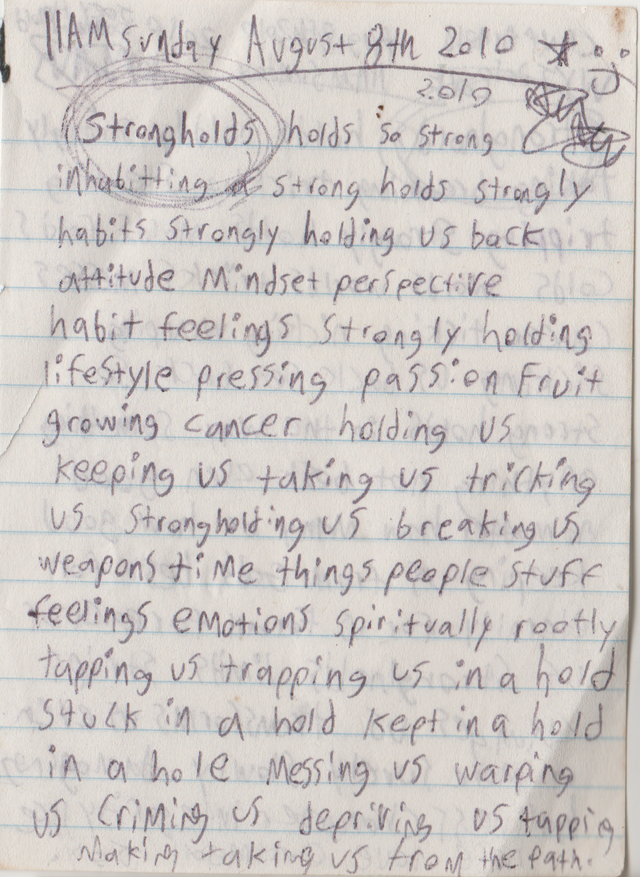 11AM Sunday August 8th 2010
2010
Strongholds holds so strong
inhabitting a strong holds strongly
habits strongly holding us back
attitude Mindset perspective
habit feelings strongly holding
lifestyle pressing passion Fruit
growing cancer holding us
keeping us taking us tricking
us strongholding us breaking us
weapons time things people stuff
feelings emotions spiritually rootly
tapping us trapping us in a hold
Stuck in a hold kept in a hold
in a hole Messing us warping
us Criming us depriving us tappig
Making taking us from the path.